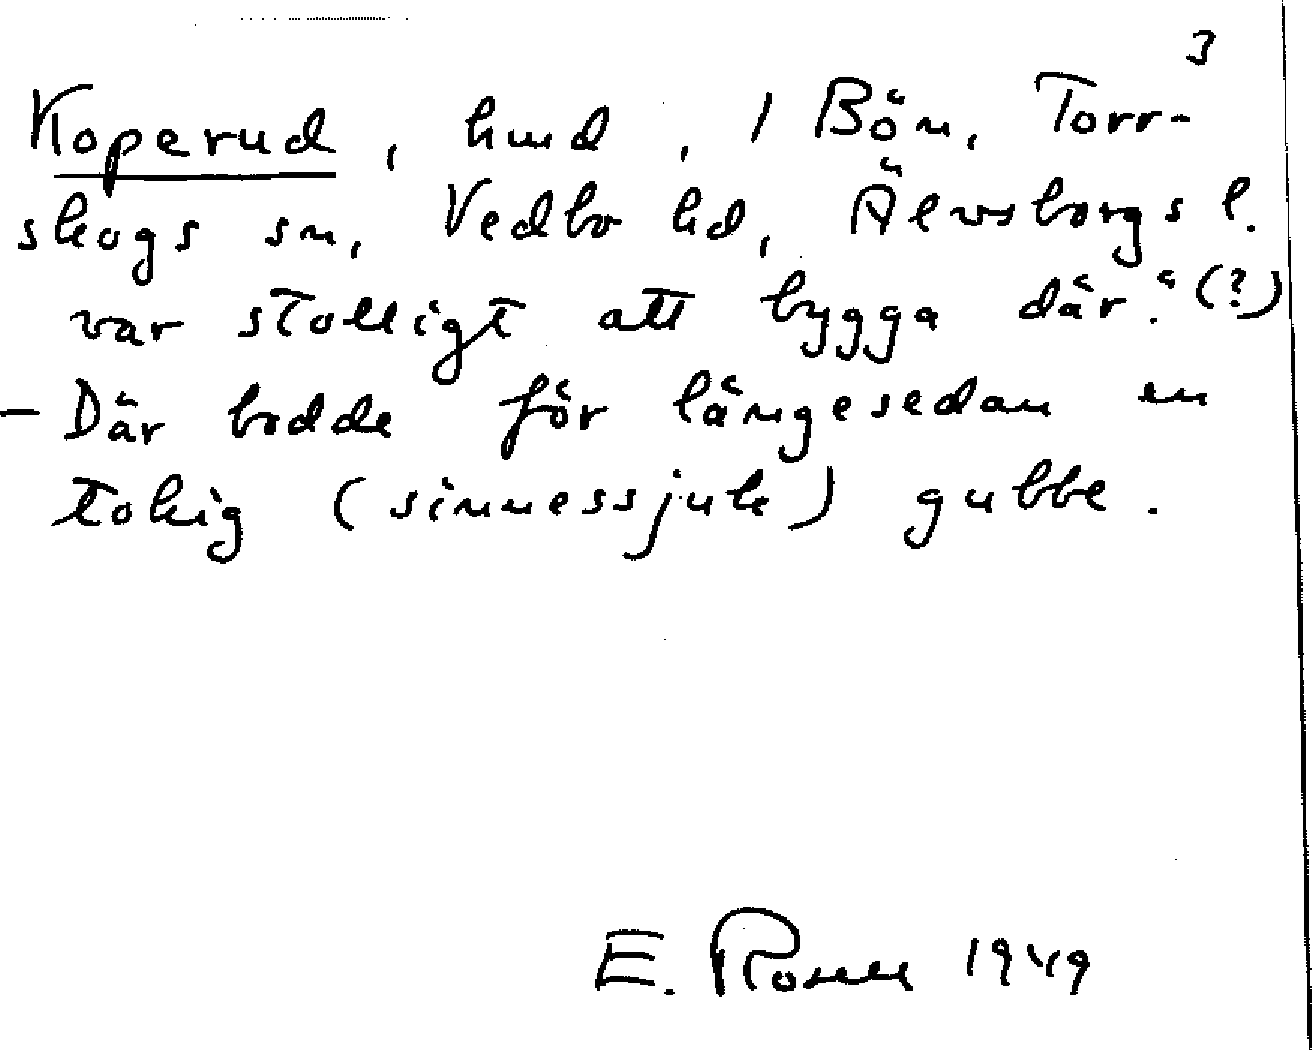 3
Koperud, hmd, 1 Bön, Torr-
skogs sn, Vedbo hd, Älvsborgs l.
var stolligt att bygga där." (?)
- Där bodde för längesedan en
tokig (sinnessjuk) gubbe.
E. Rosell 1949